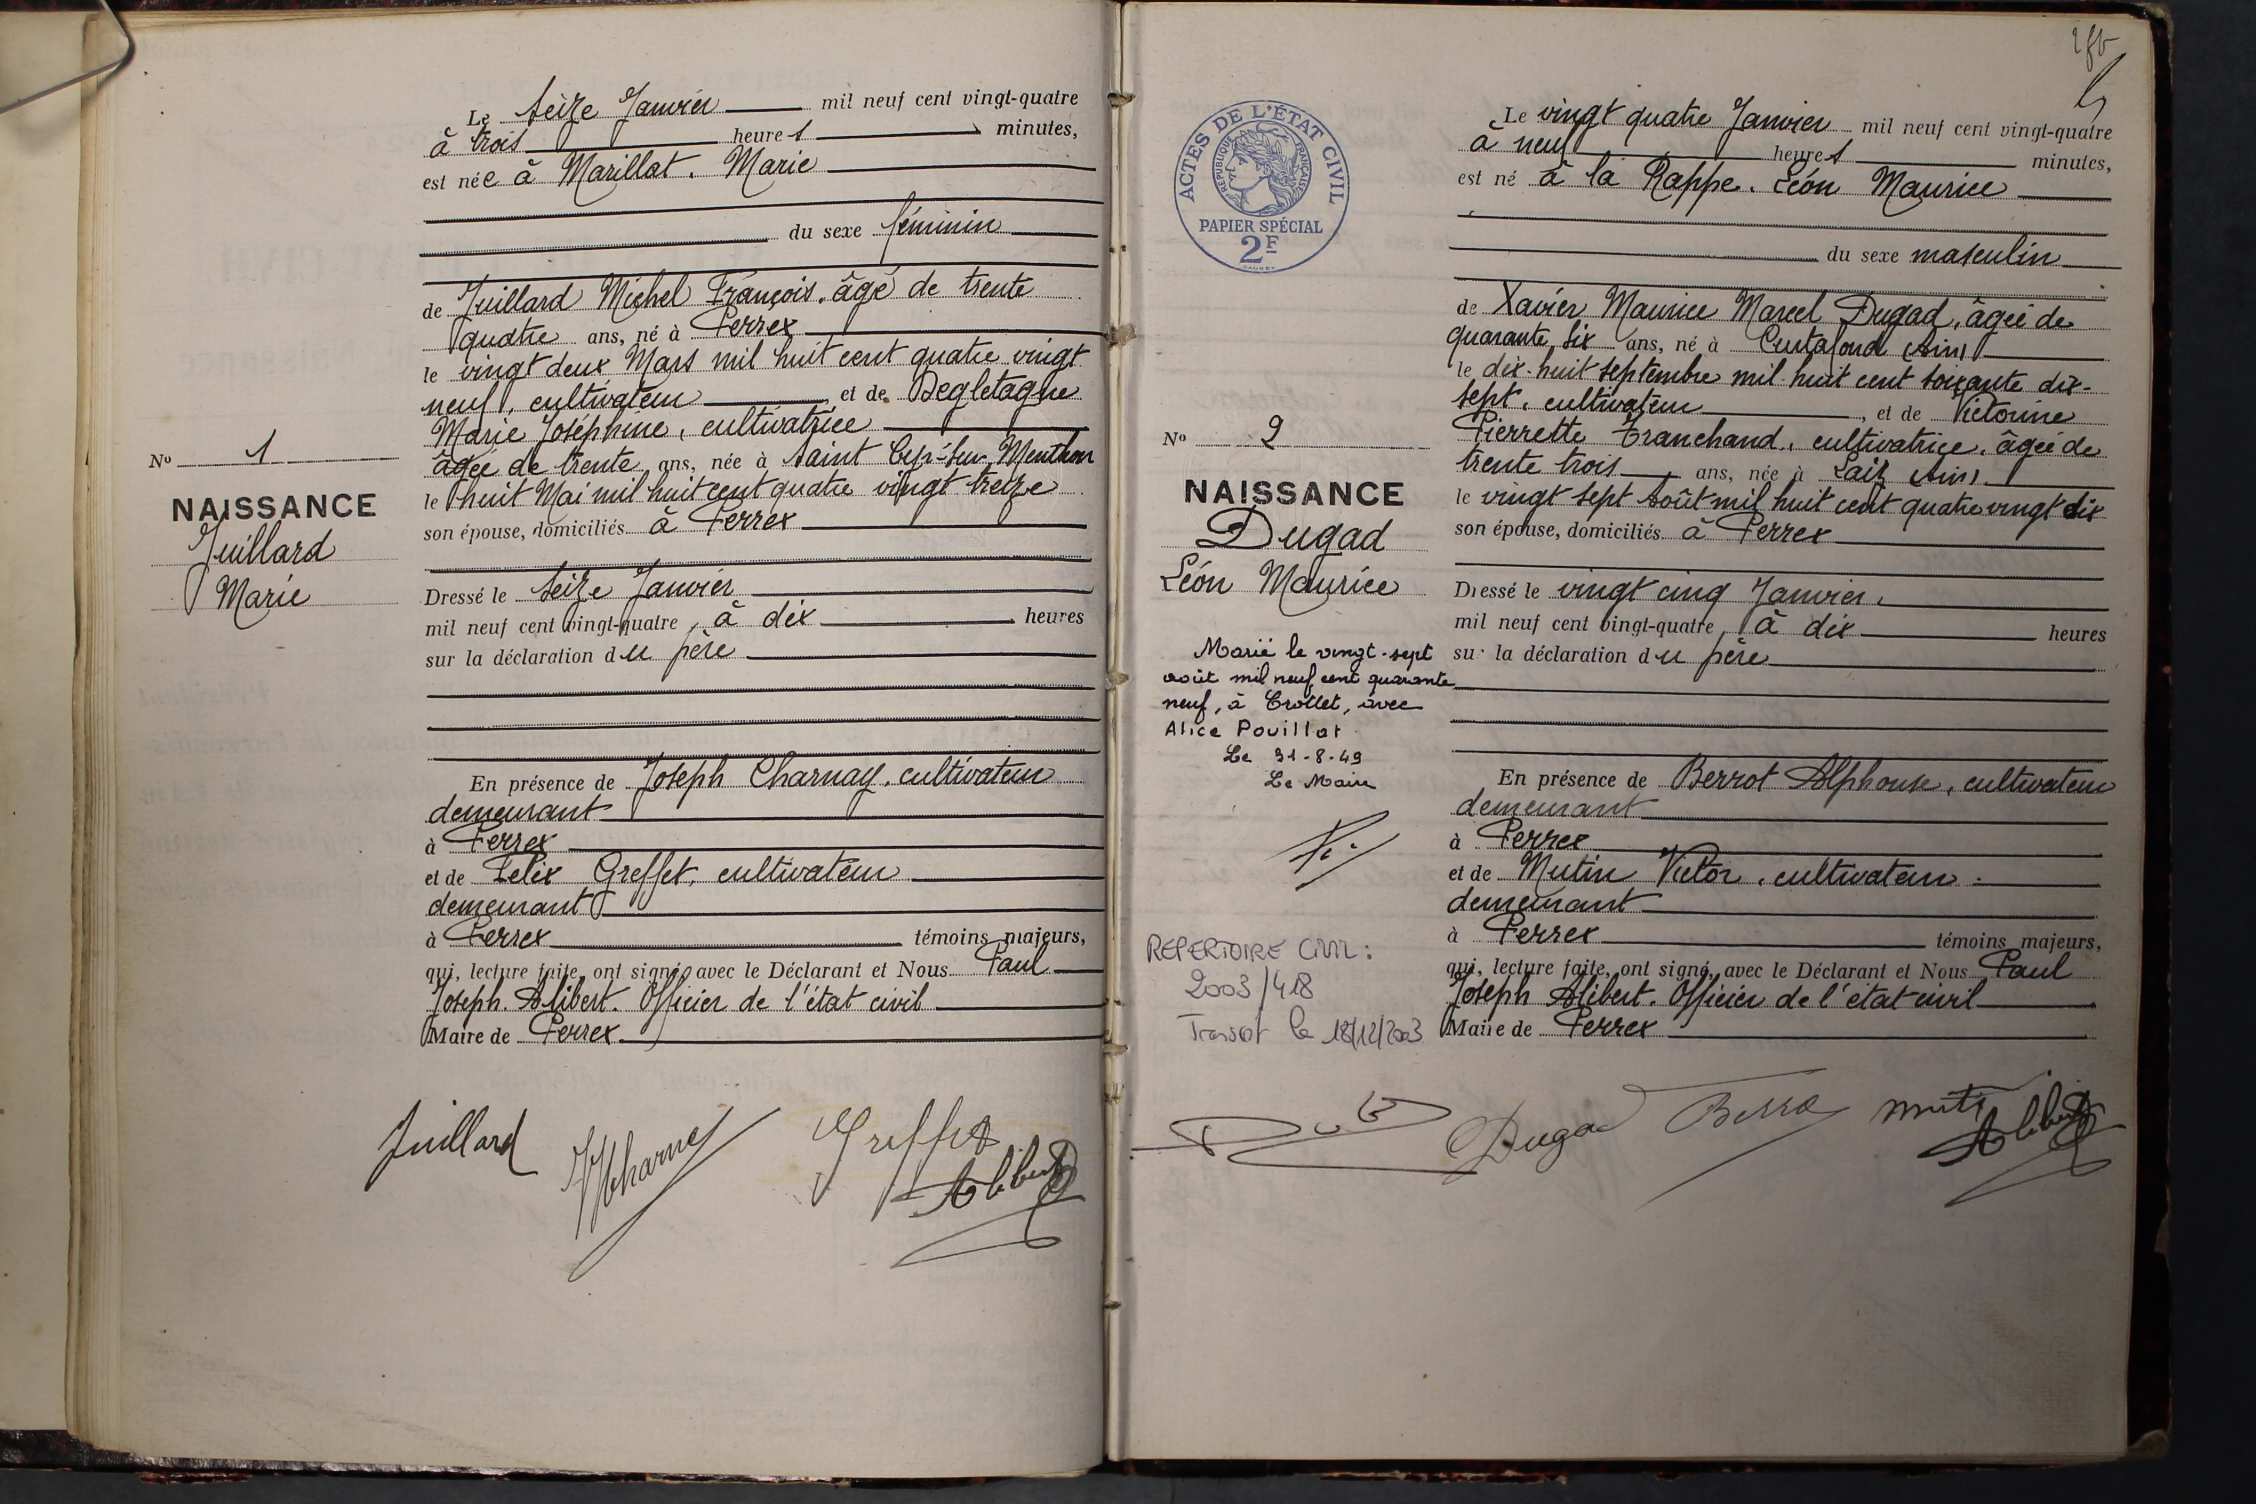 Le seize Janvier mil neuf cent vingt-quatre
à trois heures minutes,
est née à Marillat. Marie
du sexe féminin
de Juillard Michel François, âgé de trente
quatre ans, né à Perrex
le vingt deux Mars mil huit cent quatre vingt
neuf, cultivateur, et de Degletagne
Marie Joséphine, cultivatrice
âgée de trente ans, née à Saint Cyr-sur-Menthon
le huit Mai mil huit cent quatre vingt treize
son épouse, domiciliés à Perrex
Nº 1
NAISSANCE
Juillard
Marie
Dressé le seize Janvier
mil neuf cent vingt-quatre, à dix heures
sur la déclaration du père
En présence de Joseph Charnay, cultivateur
demeurant
à Perrex
et de Felix Greffet, cultivateur
demeurant
à Perrex témoins majeurs,
qui, lecture faite, ont signé avec le Déclarant et Nous Paul
Joseph Alibert. Officier de l'état civil
Maire de Perrex
Juillard
JHCharnay
Greffet
Alibert
ACTES DE L'ÉTAT CIVIL
RÉPUBLIQUE FRANÇAISE
PAPIER SPÉCIAL
2F
Le vingt quatre Janvier mil neuf cent vingt-quatre
à neuf heures minutes,
est né à la Rappe. Léon Maurice
du sexe masculin
de Xavier Maurice Marcel Dugad, âgée de
quarante six ans, né à Curtafond (Ain)
le dix-huit septembre mil huit cent soixante dix-
sept, cultivateur, et de Victorine
Pierrette Tranchand, cultivatrice, âgée de
trente trois ans, née à Laiz (Ain)
le vingt sept Août mil huit cent quatre vingt dix
son épouse, domiciliés à Perrex
Nº 2
NAISSANCE
Dugad
Léon Maurice
Marié le vingt-sept
août mil neuf cent quarante
neuf, à Crottet, avec
Alice Pouillat
Le 31-8-49
Le Maire
REPERTOIRE CIVIL :
2003/418
Transcrit le 18/12/2003
Dressé le vingt cinq Janvier,
mil neuf cent vingt-quatre, à dix heures
sur la déclaration du père
En présence de Berrot Alphonse, cultivateur
demeurant
à Perrex
et de Mutin Victor, cultivateur
demeurant
à Perrex témoins majeurs,
qui, lecture faite, ont signé, avec le Déclarant et Nous Paul
Joseph Alibert. Officier de l'état civil
Maire de Perrex
Dugad
Berro
Alibert